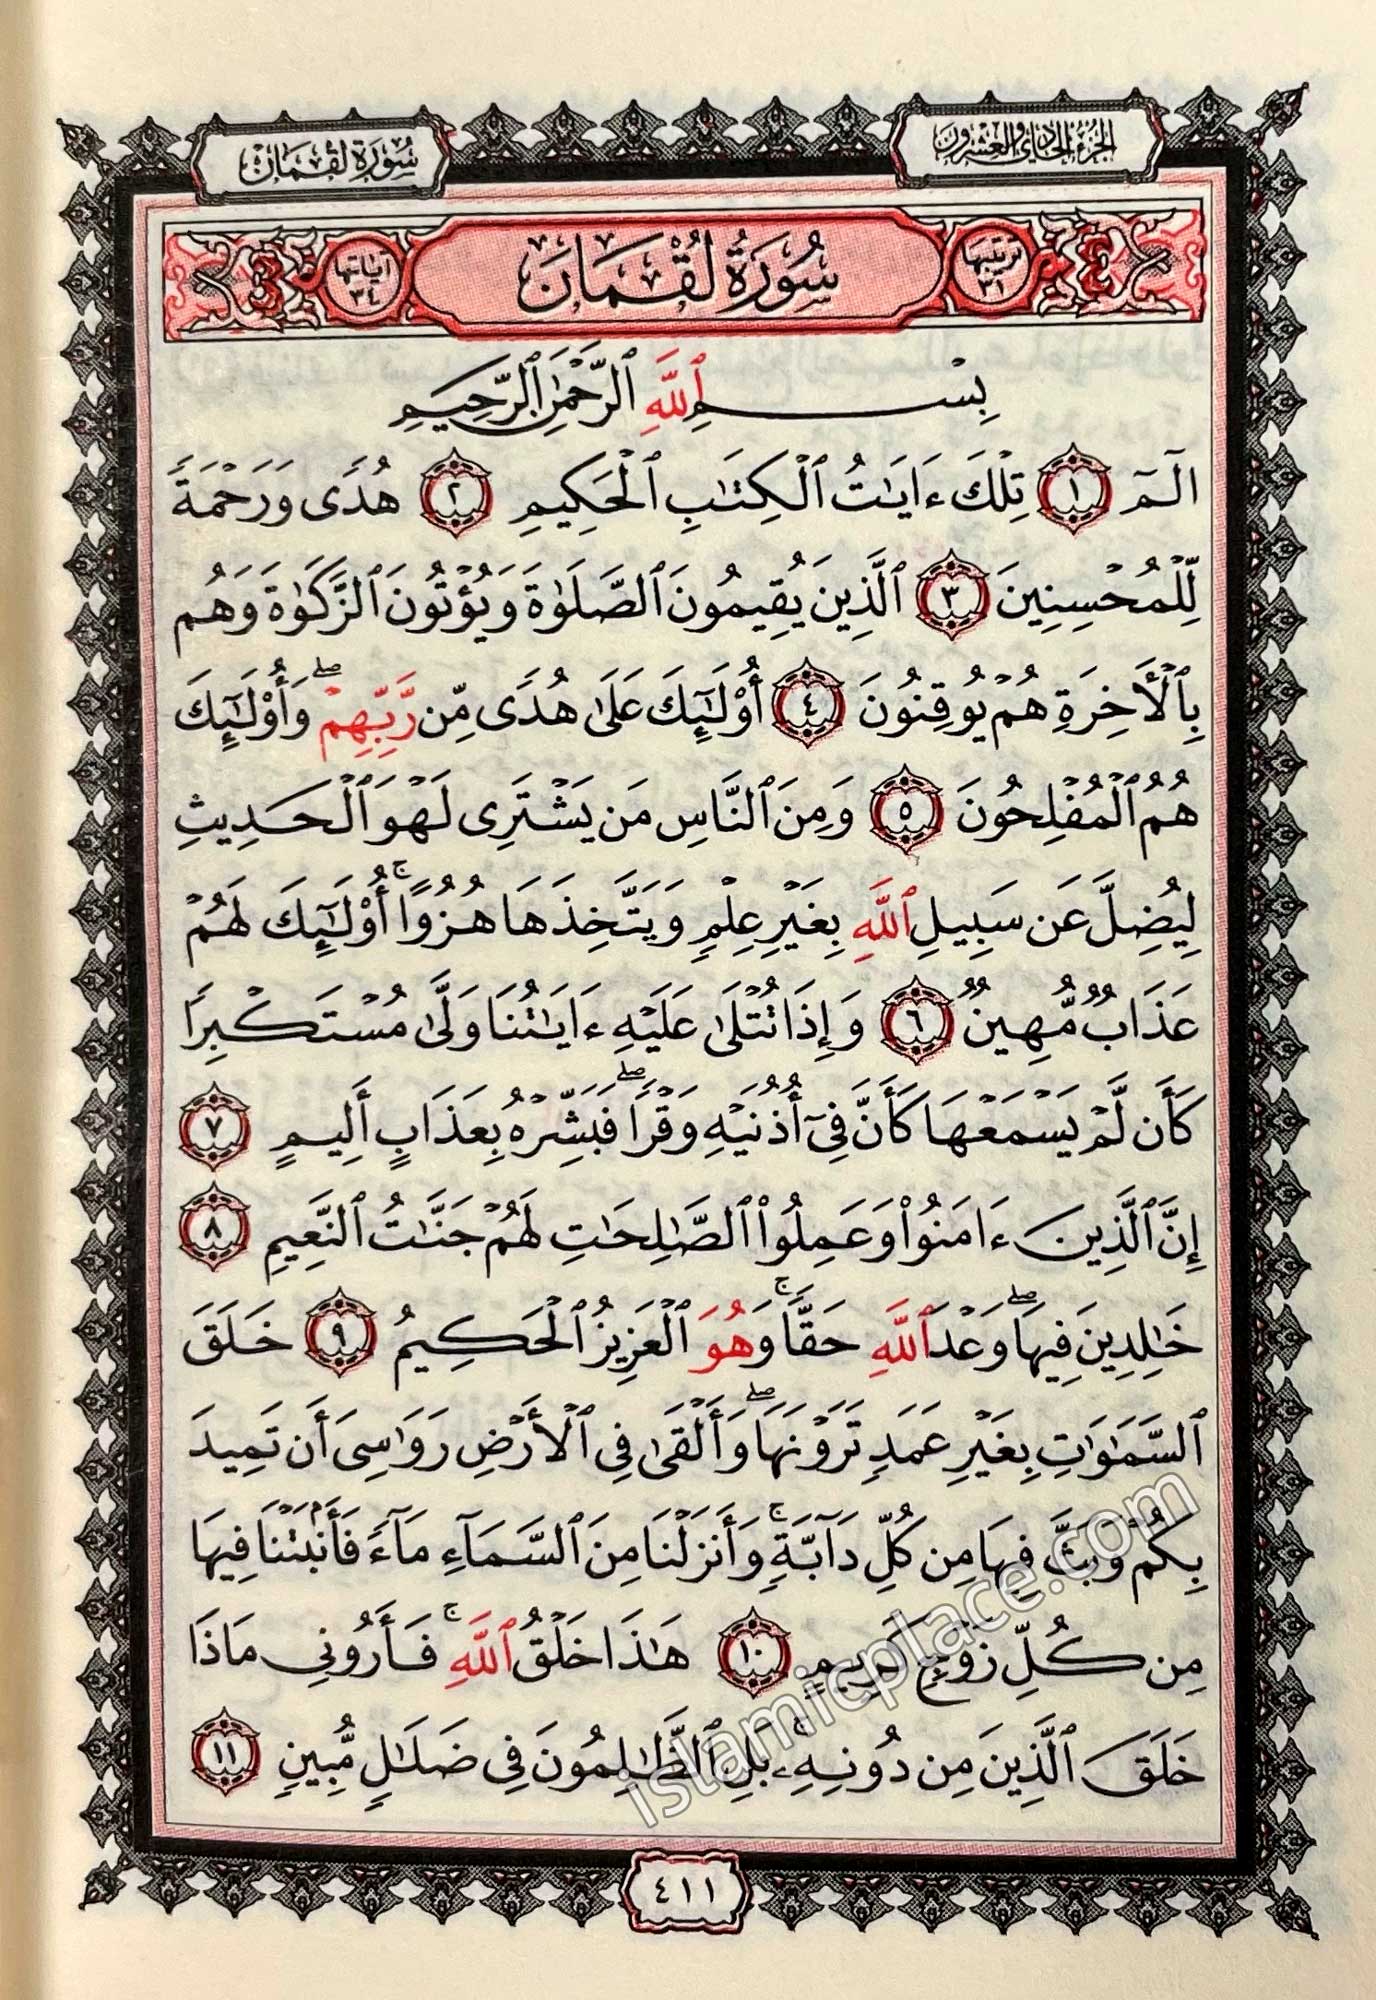 الجزء الحادي والعشرون
سورة لقمان
ترتيبها ٣١
سُورَةُ لُقْمَان
آياتها ٣٤
بِسْمِ ٱللَّهِ ٱلرَّحْمَٰنِ ٱلرَّحِيمِ
الٓمٓ ١ تِلْكَ ءَايَٰتُ ٱلْكِتَٰبِ ٱلْحَكِيمِ ٢ هُدًى وَرَحْمَةً
لِّلْمُحْسِنِينَ ٣ ٱلَّذِينَ يُقِيمُونَ ٱلصَّلَوٰةَ وَيُؤْتُونَ ٱلزَّكَوٰةَ وَهُم
بِٱلْأَخِرَةِ هُمْ يُوقِنُونَ ٤ أُوْلَٰٓئِكَ عَلَىٰ هُدًى مِّن رَّبِّهِمْ ۖ وَأُوْلَٰٓئِكَ
هُمُ ٱلْمُفْلِحُونَ ٥ وَمِنَ ٱلنَّاسِ مَن يَشْتَرِى لَهْوَ ٱلْحَدِيثِ
لِيُضِلَّ عَن سَبِيلِ ٱللَّهِ بِغَيْرِ عِلْمٍ وَيَتَّخِذَهَا هُزُوًا ۚ أُوْلَٰٓئِكَ لَهُمْ
عَذَابٌ مُّهِينٌ ٦ وَإِذَا تُتْلَىٰ عَلَيْهِ ءَايَٰتُنَا وَلَّىٰ مُسْتَكْبِرًا
كَأَن لَّمْ يَسْمَعْهَا كَأَنَّ فِىٓ أُذُنَيْهِ وَقْرًا ۖ فَبَشِّرْهُ بِعَذَابٍ أَلِيمٍ ٧
إِنَّ ٱلَّذِينَ ءَامَنُوا۟ وَعَمِلُوا۟ ٱلصَّٰلِحَٰتِ لَهُمْ جَنَّٰتُ ٱلنَّعِيمِ ٨
خَٰلِدِينَ فِيهَا ۖ وَعْدَ ٱللَّهِ حَقًّا ۚ وَهُوَ ٱلْعَزِيزُ ٱلْحَكِيمُ ٩ خَلَقَ
ٱلسَّمَٰوَٰتِ بِغَيْرِ عَمَدٍ تَرَوْنَهَا ۖ وَأَلْقَىٰ فِى ٱلْأَرْضِ رَوَٰسِىَ أَن تَمِيدَ
بِكُمْ وَبَثَّ فِيهَا مِن كُلِّ دَآبَّةٍ ۚ وَأَنزَلْنَا مِنَ ٱلسَّمَآءِ مَآءً فَأَنۢبَتْنَا فِيهَا
مِن كُلِّ زَوْجٍ كَرِيمٍ ١٠ هَٰذَا خَلْقُ ٱللَّهِ ۚ فَأَرُونِى مَاذَا
خَلَقَ ٱلَّذِينَ مِن دُونِهِۦ ۚ بَلِ ٱلظَّٰلِمُونَ فِى ضَلَٰلٍ مُّبِينٍ ١١
islamicplace.com
٤١١